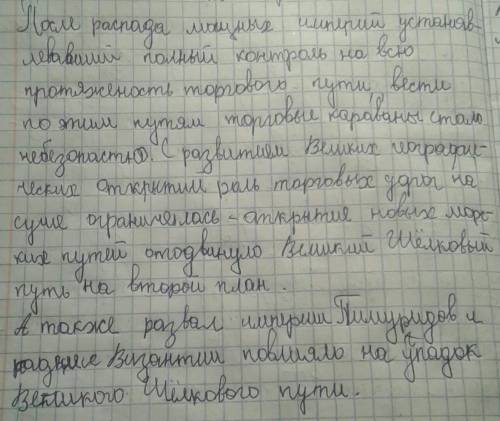 После распада мощных империй установ-
левавший полный контроль на всю
протяженость торгового пути, вести
по этим путям торговые караваны стало
небезопастно. С развитием Великих географи-
ческих открытий роль торговых дорог на
суше ограничелась - открытие новых морс-
ких путей отодвинуло Великий Шёлковый
путь на второй план.
А также развал империи Тимуридов и
Византии повлияло на упадок
Великого Шёлкового пути.